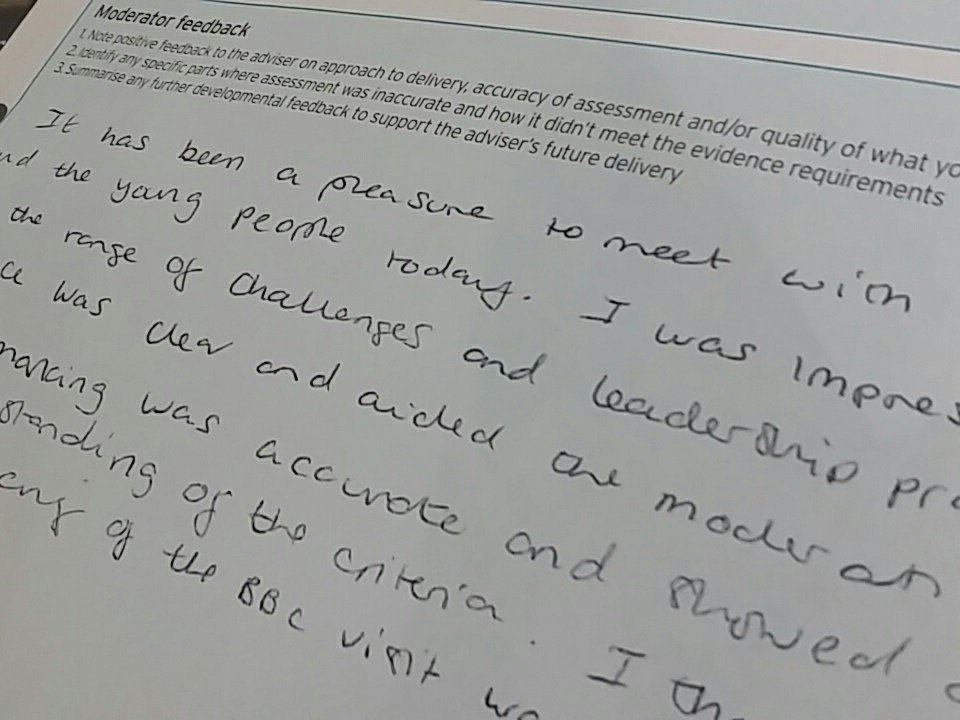 Moderator feedback
1. Note positive feedback to the adviser on approach to delivery, accuracy of assessment and/or quality of what yo
2. Identify any specific parts where assessment was inaccurate and how it didn't meet the evidence requirements
3. Summarise any further developmental feedback to support the adviser's future delivery
It has been a pleasure to meet with
nd the young people today. I was impres
the range of challenges and leadership pro
ce was clear and aided the moderati
marking was accurate and showed
standing of the criteria. I th
eny of the BBC visit wa